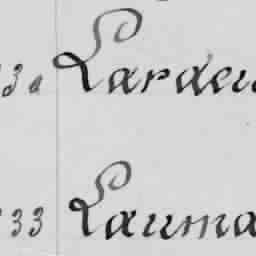 33a Lardeu
33 Lauma